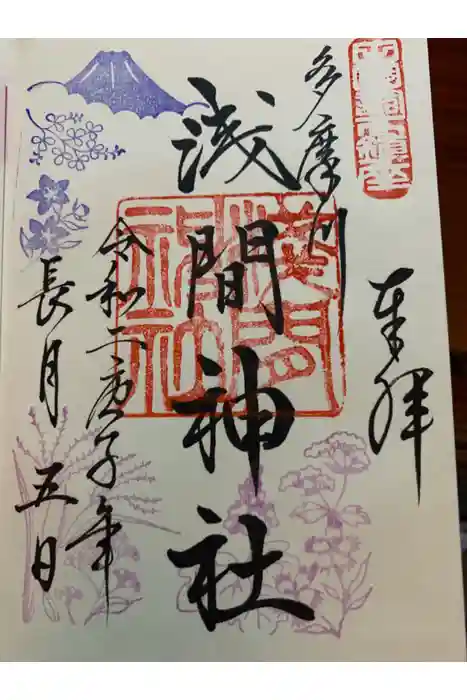 奉拝
多摩川
浅間神社
令和二庚子年
長月五日
浅間
神社